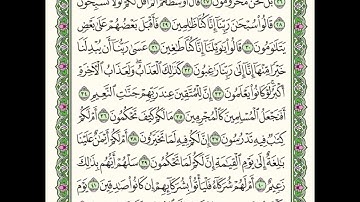 ٢٦ بَلْ نَحْنُ مَحْرُومُونَ ٢٧ قَالَ أَوْسَطُهُمْ أَلَمْ أَقُل لَّكُمْ لَوْلَا تُسَبِّحُونَ
٢٨ قَالُوا۟ سُبْحَٰنَ رَبِّنَآ إِنَّا كُنَّا ظَٰلِمِينَ ٢٩ فَأَقْبَلَ بَعْضُهُمْ عَلَىٰ بَعْضٍ
يَتَلَٰوَمُونَ ٣٠ قَالُوا۟ يَٰوَيْلَنَآ إِنَّا كُنَّا طَٰغِينَ ٣١ عَسَىٰ رَبُّنَآ أَن يُبْدِلَنَا
خَيْرًا مِّنْهَآ إِنَّآ إِلَىٰ رَبِّنَا رَٰغِبُونَ ٣٢ كَذَٰلِكَ ٱلْعَذَابُ وَلَعَذَابُ ٱلْءَاخِرَةِ أَكْبَرُ
لَوْ كَانُوا۟ يَعْلَمُونَ ٣٣ إِنَّ لِلْمُتَّقِينَ عِندَ رَبِّهِمْ جَنَّٰتِ ٱلنَّعِيمِ ٣٤
أَفَنَجْعَلُ ٱلْمُسْلِمِينَ كَٱلْمُجْرِمِينَ ٣٥ مَا لَكُمْ كَيْفَ تَحْكُمُونَ ٣٦ أَمْ لَكُمْ
كِتَٰبٌ فِيهِ تَدْرُسُونَ ٣٧ إِنَّ لَكُمْ فِيهِ لَمَا تَخَيَّرُونَ ٣٨ أَمْ لَكُمْ أَيْمَٰنٌ عَلَيْنَا
بَٰلِغَةٌ إِلَىٰ يَوْمِ ٱلْقِيَٰمَةِ إِنَّ لَكُمْ لَمَا تَحْكُمُونَ ٣٩ سَلْهُمْ أَيُّهُم بِذَٰلِكَ
زَعِيمٌ ٤٠ أَمْ لَهُمْ شُرَكَآءُ فَلْيَأْتُوا۟ بِشُرَكَآئِهِمْ إِن كَانُوا۟ صَٰدِقِينَ ٤١ يَوْمَ